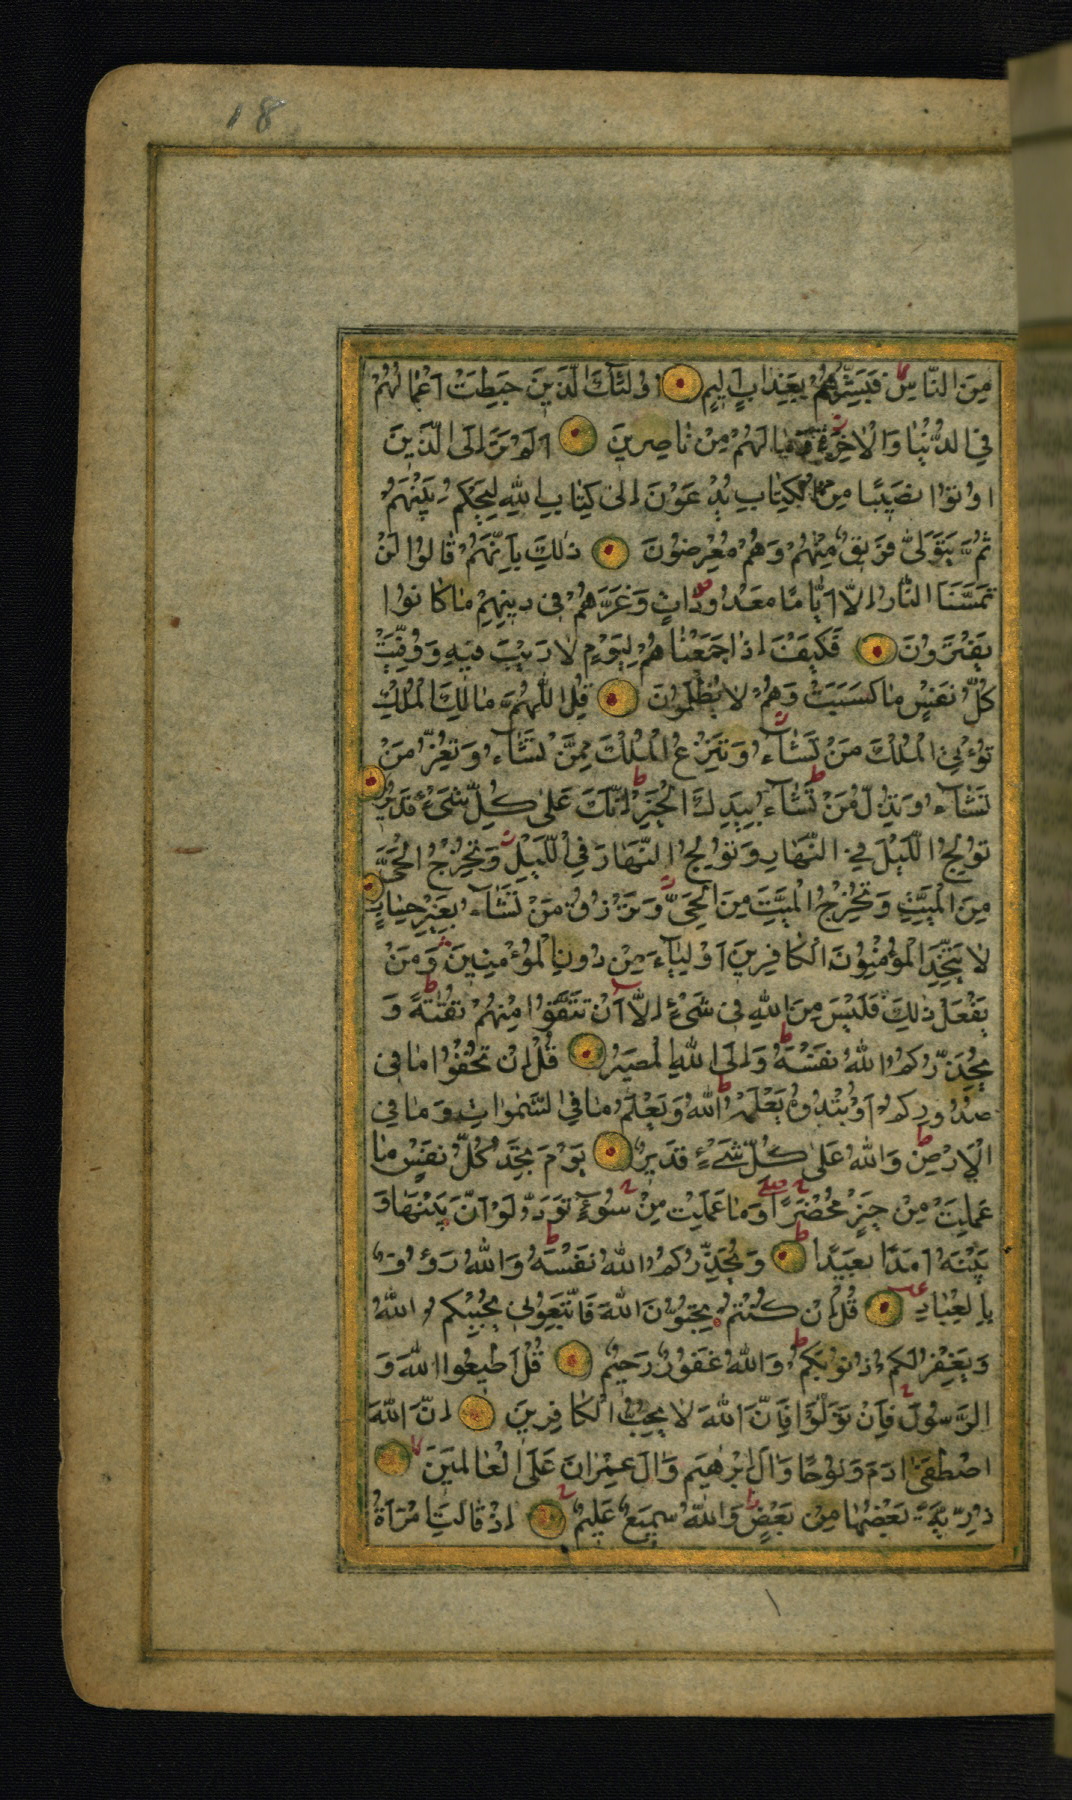 18
مِنَ النَّاسِ فَبَشِّرْهُمْ بِعَذَابٍ اَلِيمٍ اُولٰٓئِكَ الَّذِينَ حَبِطَتْ اَعْمَالُهُمْ
فِي الدُّنْيَا وَالْاٰخِرَةِ وَمَا لَهُمْ مِنْ نَاصِرِينَ اَلَمْ تَرَ اِلَى الَّذِينَ
اُوتُوا نَصِيبًا مِنَ الْكِتَابِ يُدْعَوْنَ اِلٰى كِتَابِ اللّٰهِ لِيَحْكُمَ بَيْنَهُمْ
ثُمَّ يَتَوَلّٰى فَرِيقٌ مِنْهُمْ وَهُمْ مُعْرِضُونَ ذٰلِكَ بِاَنَّهُمْ قَالُوا لَنْ
تَمَسَّنَا النَّارُ اِلَّا اَيَّامًا مَعْدُودَاتٍ وَغَرَّهُمْ فِى دِينِهِمْ مَا كَانُوا
يَفْتَرُونَ فَكَيْفَ اِذَا جَمَعْنَاهُمْ لِيَوْمٍ لَا رَيْبَ فِيهِ وَوُفِّيَتْ
كُلُّ نَفْسٍ مَا كَسَبَتْ وَهُمْ لَا يُظْلَمُونَ قُلِ اللّٰهُمَّ مَالِكَ الْمُلْكِ
تُؤْتِى الْمُلْكَ مَنْ تَشَآءُ وَتَنْزِعُ الْمُلْكَ مِمَّنْ تَشَآءُ وَتُعِزُّ مَنْ
تَشَآءُ وَتُذِلُّ مَنْ تَشَآءُ بِيَدِكَ الْخَيْرُ اِنَّكَ عَلٰى كُلِّ شَىْءٍ قَدِيرٌ
تُولِجُ اللَّيْلَ فِى النَّهَارِ وَتُولِجُ النَّهَارَ فِى اللَّيْلِ وَتُخْرِجُ الْحَىَّ
مِنَ الْمَيِّتِ وَتُخْرِجُ الْمَيِّتَ مِنَ الْحَىِّ وَتَرْزُقُ مَنْ تَشَآءُ بِغَيْرِ حِسَابٍ
لَا يَتَّخِذِ الْمُؤْمِنُونَ الْكَافِرِينَ اَوْلِيَآءَ مِنْ دُونِ الْمُؤْمِنِينَ وَمَنْ
يَفْعَلْ ذٰلِكَ فَلَيْسَ مِنَ اللّٰهِ فِى شَىْءٍ اِلَّآ اَنْ تَتَّقُوا مِنْهُمْ تُقٰيةً وَ
يُحَذِّرُكُمُ اللّٰهُ نَفْسَهُ وَاِلَى اللّٰهِ الْمَصِيرُ قُلْ اِنْ تُخْفُوا مَا فِى
صُدُورِكُمْ اَوْ تُبْدُوهُ يَعْلَمْهُ اللّٰهُ وَيَعْلَمُ مَا فِى السَّمٰوَاتِ وَمَا فِى
الْاَرْضِ وَاللّٰهُ عَلٰى كُلِّ شَىْءٍ قَدِيرٌ يَوْمَ تَجِدُ كُلُّ نَفْسٍ مَا
عَمِلَتْ مِنْ خَيْرٍ مُحْضَرًا وَمَا عَمِلَتْ مِنْ سُوٓءٍ تَوَدُّ لَوْ اَنَّ بَيْنَهَا وَ
بَيْنَهُ اَمَدًا بَعِيدًا وَيُحَذِّرُكُمُ اللّٰهُ نَفْسَهُ وَاللّٰهُ رَؤُفٌ
بِالْعِبَادِ قُلْ اِنْ كُنْتُمْ تُحِبُّونَ اللّٰهَ فَاتَّبِعُونِى يُحْبِبْكُمُ اللّٰهُ
وَيَغْفِرْ لَكُمْ ذُنُوبَكُمْ وَاللّٰهُ غَفُورٌ رَحِيمٌ قُلْ اَطِيعُوا اللّٰهَ وَ
الرَّسُولَ فَاِنْ تَوَلَّوْا فَاِنَّ اللّٰهَ لَا يُحِبُّ الْكَافِرِينَ اِنَّ اللّٰهَ
اصْطَفٰى اٰدَمَ وَنُوحًا وَاٰلَ اِبْرٰهِيمَ وَاٰلَ عِمْرَانَ عَلَى الْعَالَمِينَ
ذُرِّيَّةً بَعْضُهَا مِنْ بَعْضٍ وَاللّٰهُ سَمِيعٌ عَلِيمٌ اِذْ قَالَتِ امْرَاَةُ